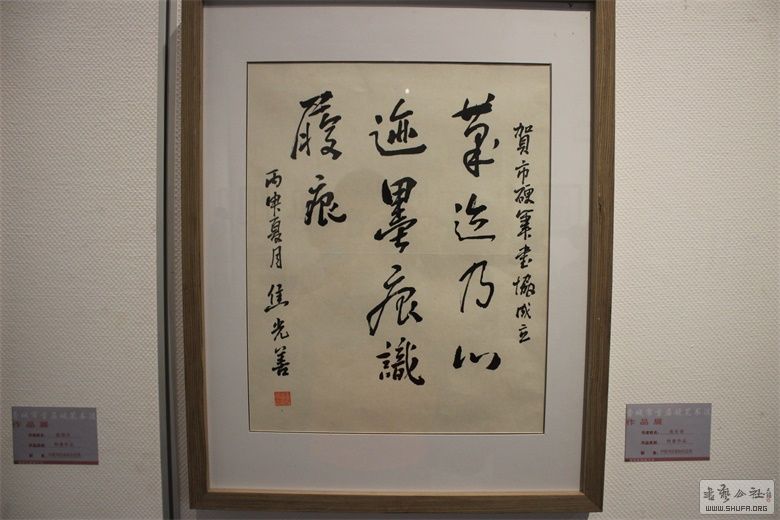 賀市硬筆書協成立
筆迹乃心
迹墨痕識
履痕
丙申夏月 焦光善
作品展
作品展
书艺公社
WWW.SHUFA.ORG